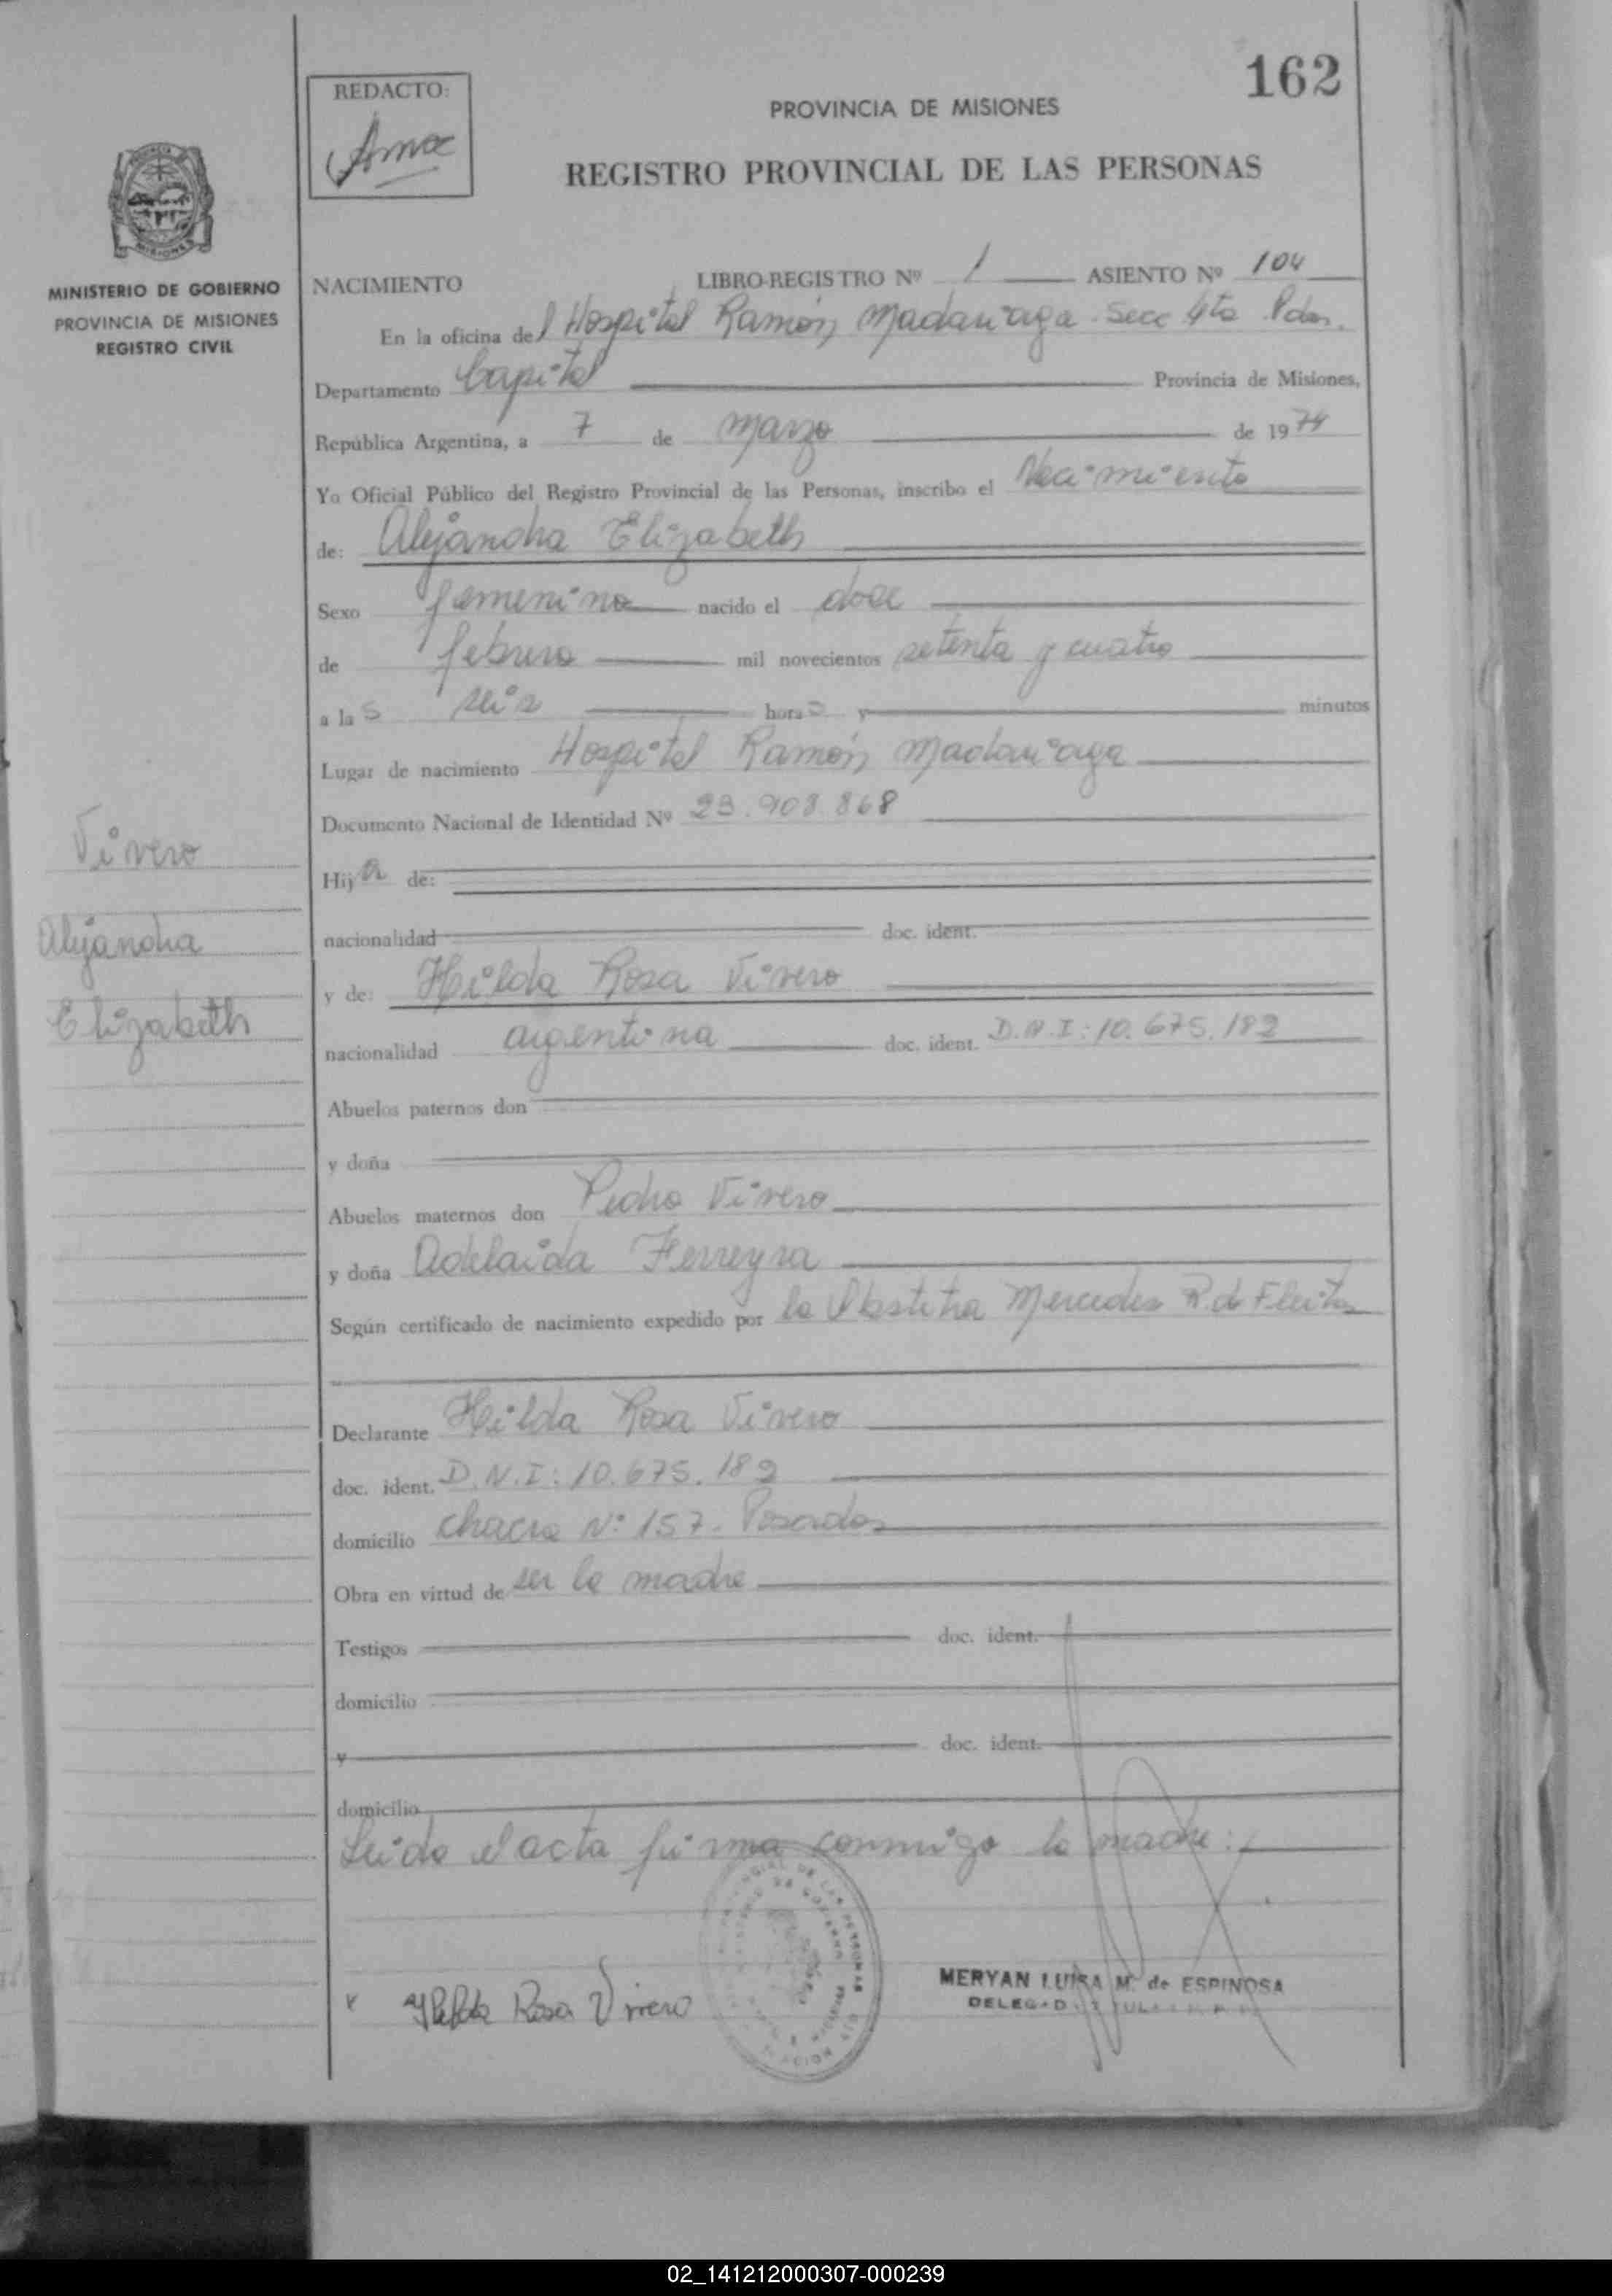 162
REDACTO:
PROVINCIA DE MISIONES
REGISTRO PROVINCIAL DE LAS PERSONAS
MINISTERIO DE GOBIERNO
PROVINCIA DE MISIONES
REGISTRO CIVIL
NACIMIENTO LIBRO-REGISTRO Nº 1 ASIENTO Nº 104
En la oficina del Hospital Ramón Madariaga Secc 4ta Pdas.
Departamento Capital Provincia de Misiones,
República Argentina, a 7 de Marzo de 1974
Yo Oficial Público del Registro Provincial de las Personas, inscribo el Nacimiento
de: Alejandra Elizabeth
Sexo femenino nacido el doce
de febrero mil novecientos setenta y cuatro
a las seis horas y minutos
Lugar de nacimiento Hospital Ramón Madariaga
Documento Nacional de Identidad Nº 23.908.868
Hija de:
nacionalidad doc. ident.
y de: Hilda Rosa Vivero
nacionalidad argentina doc. ident. D.N.I: 10.675.182
Abuelos paternos don
y doña
Abuelos maternos don Pedro Vivero
y doña Adelaida Ferreyra
Según certificado de nacimiento expedido por la Obstetra Mercedes R. de Fleitas
Declarante Hilda Rosa Vivero
doc. ident. D.N.I: 10.675.182
domicilio chacra Nº 157 - Posadas
Obra en virtud de ser la madre
Testigos doc. ident.
domicilio
y doc. ident.
domicilio
Leida el acta firma conmigo la madre:
Vivero
Alejandra
Elizabeth
Hilda Rosa Vivero
MERYAN LUISA M. de ESPINOSA
02_141212000307-000239